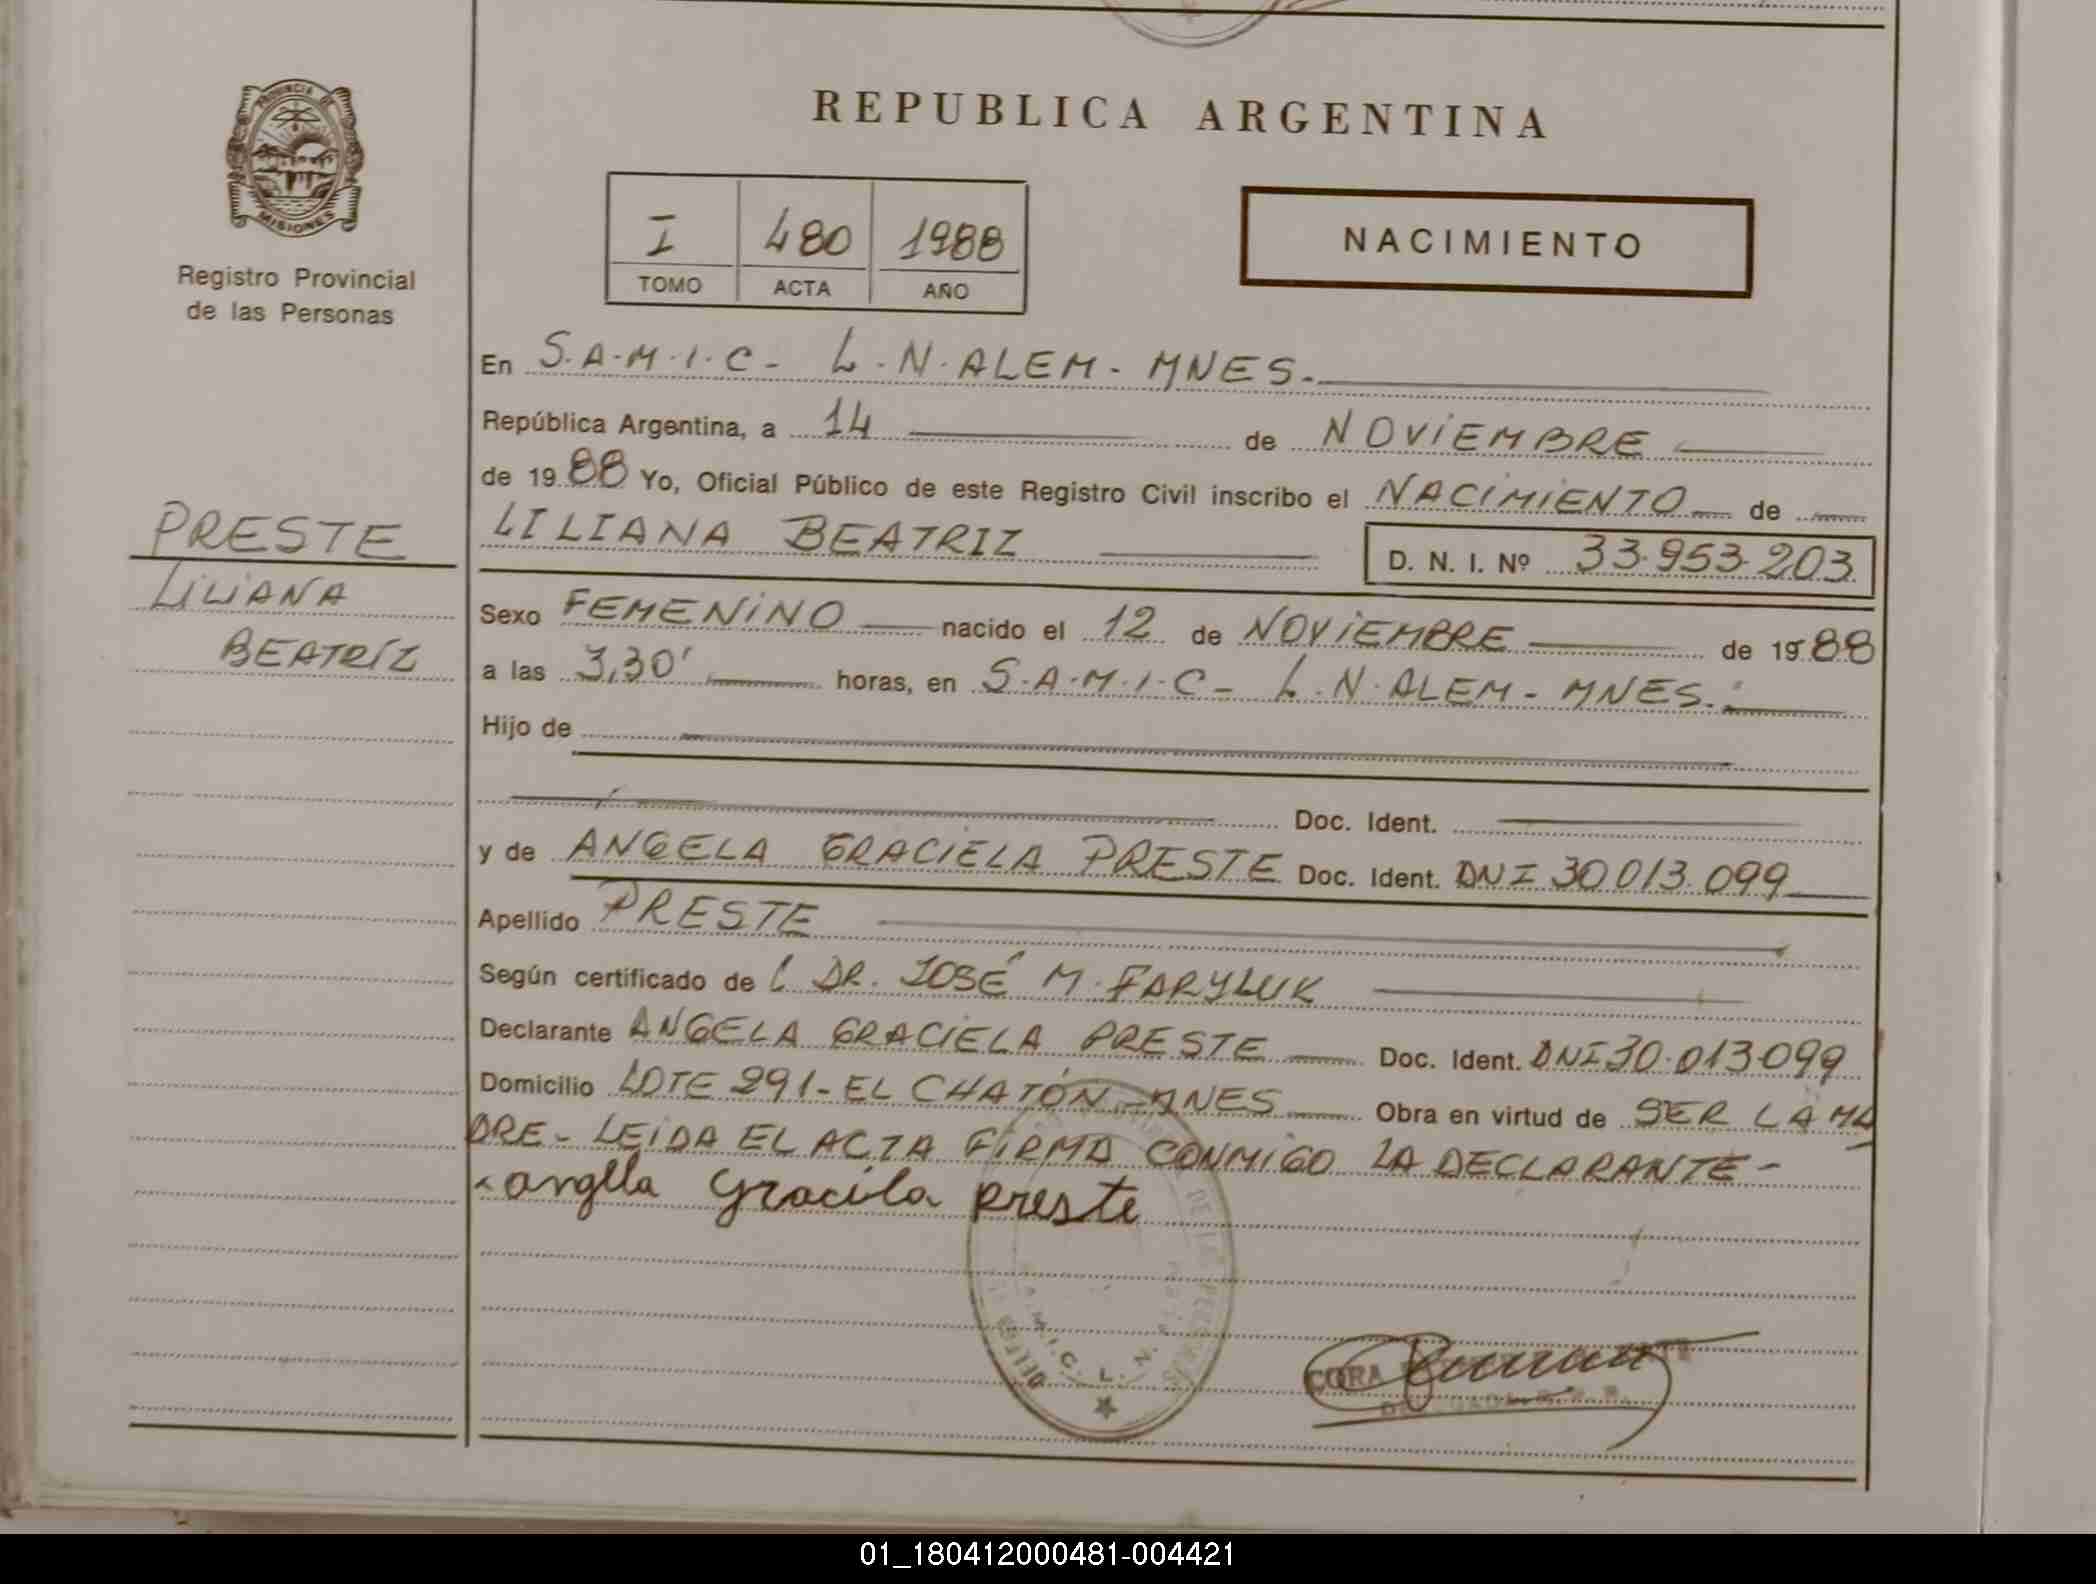 REPUBLICA ARGENTINA
PROVINCIA DE
MISIONES
Registro Provincial
de las Personas
I 480 1988
TOMO ACTA AÑO
NACIMIENTO
En S.A.M.I.C- L.N.ALEM- MNES.
República Argentina, a 14 de NOVIEMBRE
de 1988 Yo, Oficial Público de este Registro Civil inscribo el NACIMIENTO de
LILIANA BEATRIZ D. N. I. Nº 33.953.203
PRESTE
LILIANA
BEATRÍZ
Sexo FEMENINO nacido el 12 de NOVIEMBRE de 1988
a las 3,30' horas, en S.A.M.I.C- L.N.ALEM- MNES.
Hijo de
Doc. Ident.
y de ANGELA GRACIELA PRESTE Doc. Ident. DNI 30.013.099
Apellido PRESTE
Según certificado de L DR. JOSÉ M. FARYLUK
Declarante ANGELA GRACIELA PRESTE Doc. Ident. DNI 30.013.099
Domicilio LOTE 291-EL CHATÓN-MNES Obra en virtud de SER LA MA
DRE- LEIDA EL ACTA FIRMA CONMIGO LA DECLARANTE-
angela Graciela preste
S.A.M.I.C. L. N.
CORA
01_180412000481-004421